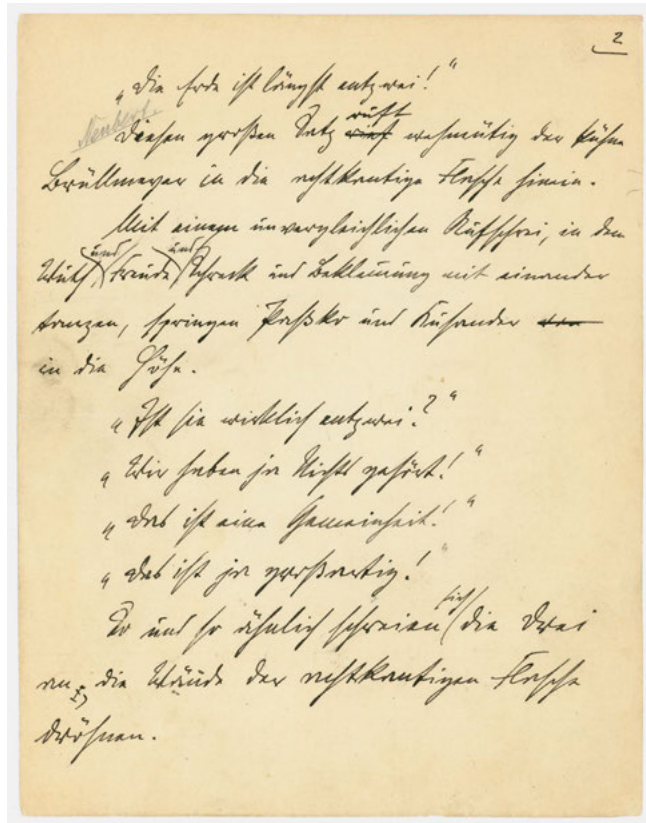 2
„Die Erde ist längst entzwei!“
Neubert
ruft
Diesen großen Satz rief wehmütig der kühne
Brüllmeyer in die achtkantige Flasche hinein.
Mit einem unvergleichlichen Aufschrei, in dem
und und
Wuth, Freude Schreck und Beklemmung mit einander
tanzen, springen Paßko und Kusander
in die Höhe.
„Ist sie wirklich entzwei?“
„Wir haben ja Nichts gehört!“
„Das ist eine Gemeinheit!“
„Das ist ja großartig!“
sich
So und so ähnlich schreien die Drei
an, die Wände der achtkantigen Flasche
dröhnen.